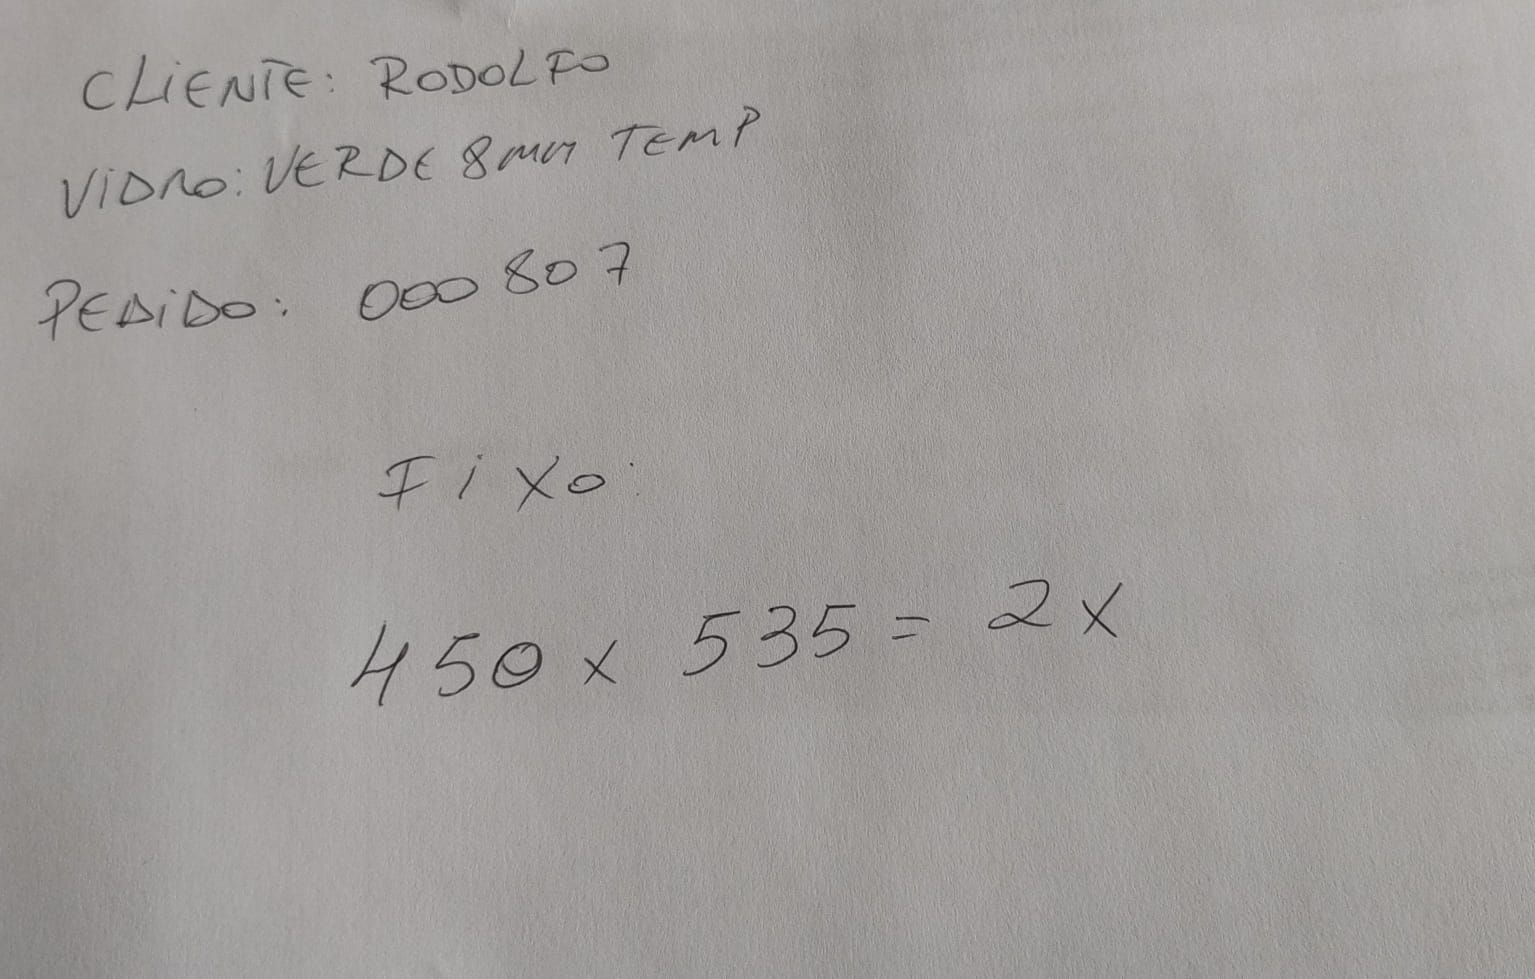 CLiENTE: RODOLFO
ViDRO: VERDE 8mm TEMP
PEDiDO: 000807
FiXO:
450 x 535 = 2x